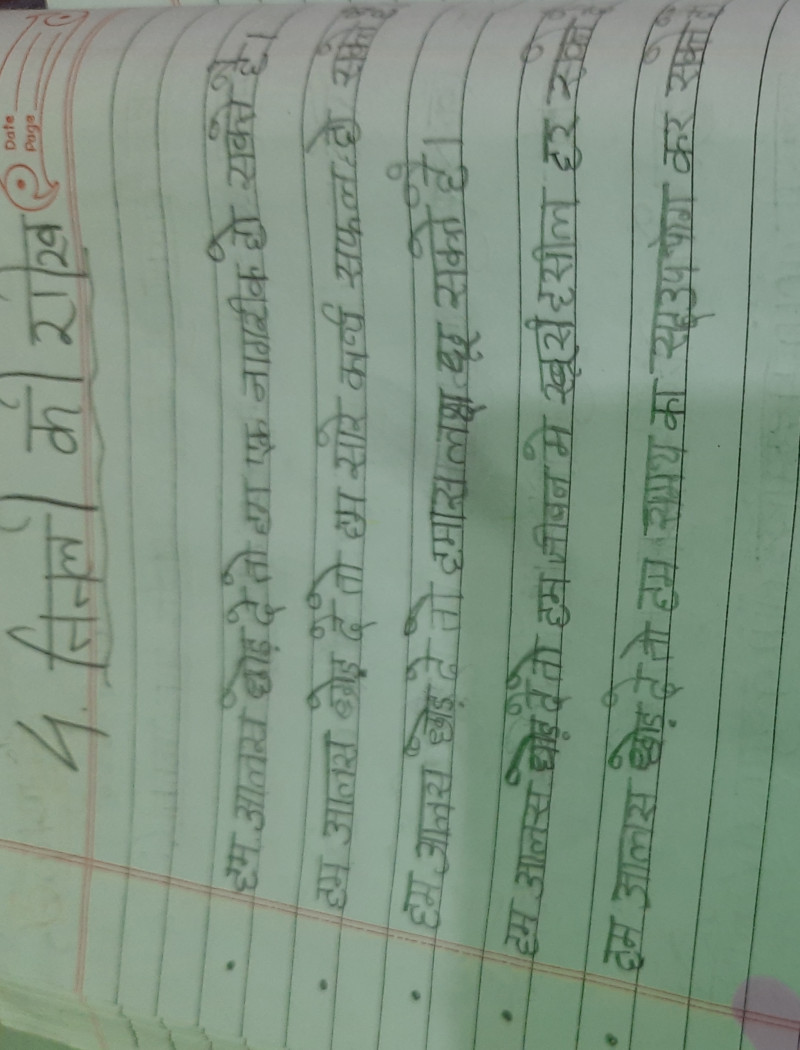 Date
Page
4. तितली की राखि
हम आलस छोड़ दे तो हम एक नागरीक हो सकते है।
हम आलस छोड़ दे तो हम सारे कार्य सफल हो सकते है
हम आलस छोड़ दे तो हमारा लक्ष्य सकते है।
हम आलस छोड़ दे तो हम जीवन मे खूसी हसील कर सकते है
हम आलस छोड़ दे तो हम समय का सदूउपयोग कर सकते है